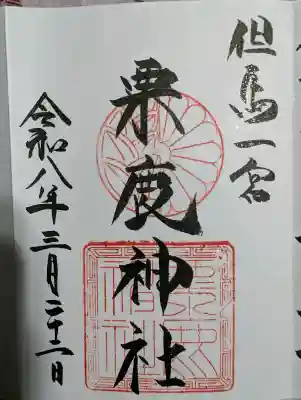 但馬一宮
粟鹿神社
令和八年三月二十一日